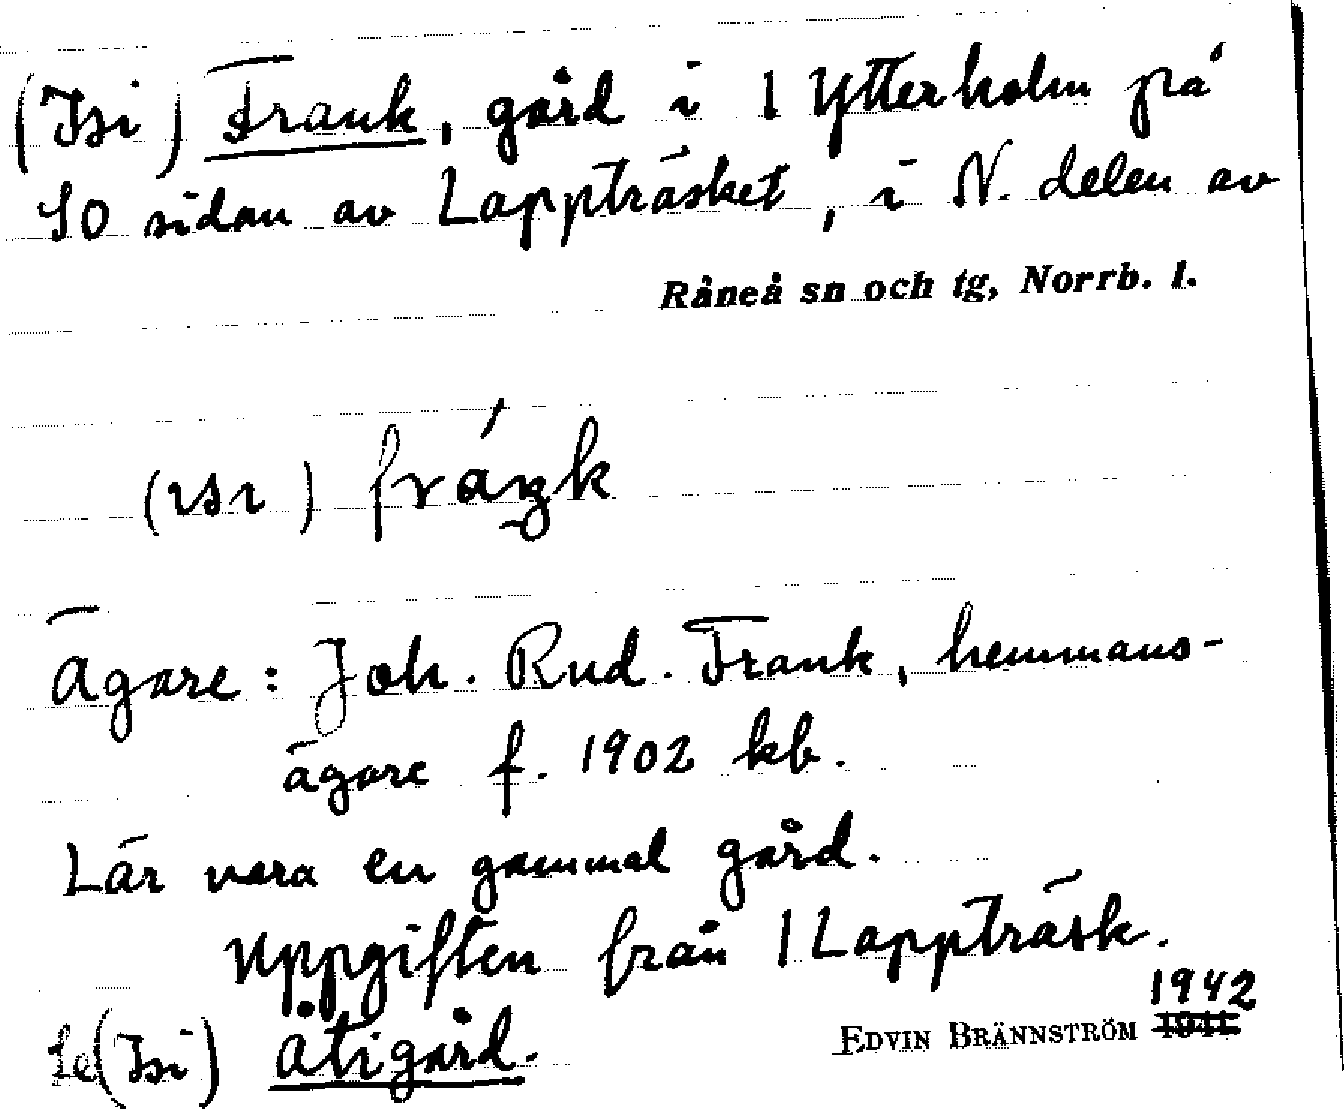 (Isi) Frank, gård i 1 Ytterholm på
SO sidan av Lappträsket, i N. delen av
Råneå sn och tg, Norrb. l.
(ısı) fráŋk
Ägare: Joh. Rud. Frank, hemmans-
ägare f. 1902 kb.
Lär vara en gammal gård.
Uppgiften från 1 Lappträsk.
Se (Isi) Åtigård.
1942
EDVIN BRÄNNSTRÖM 1941